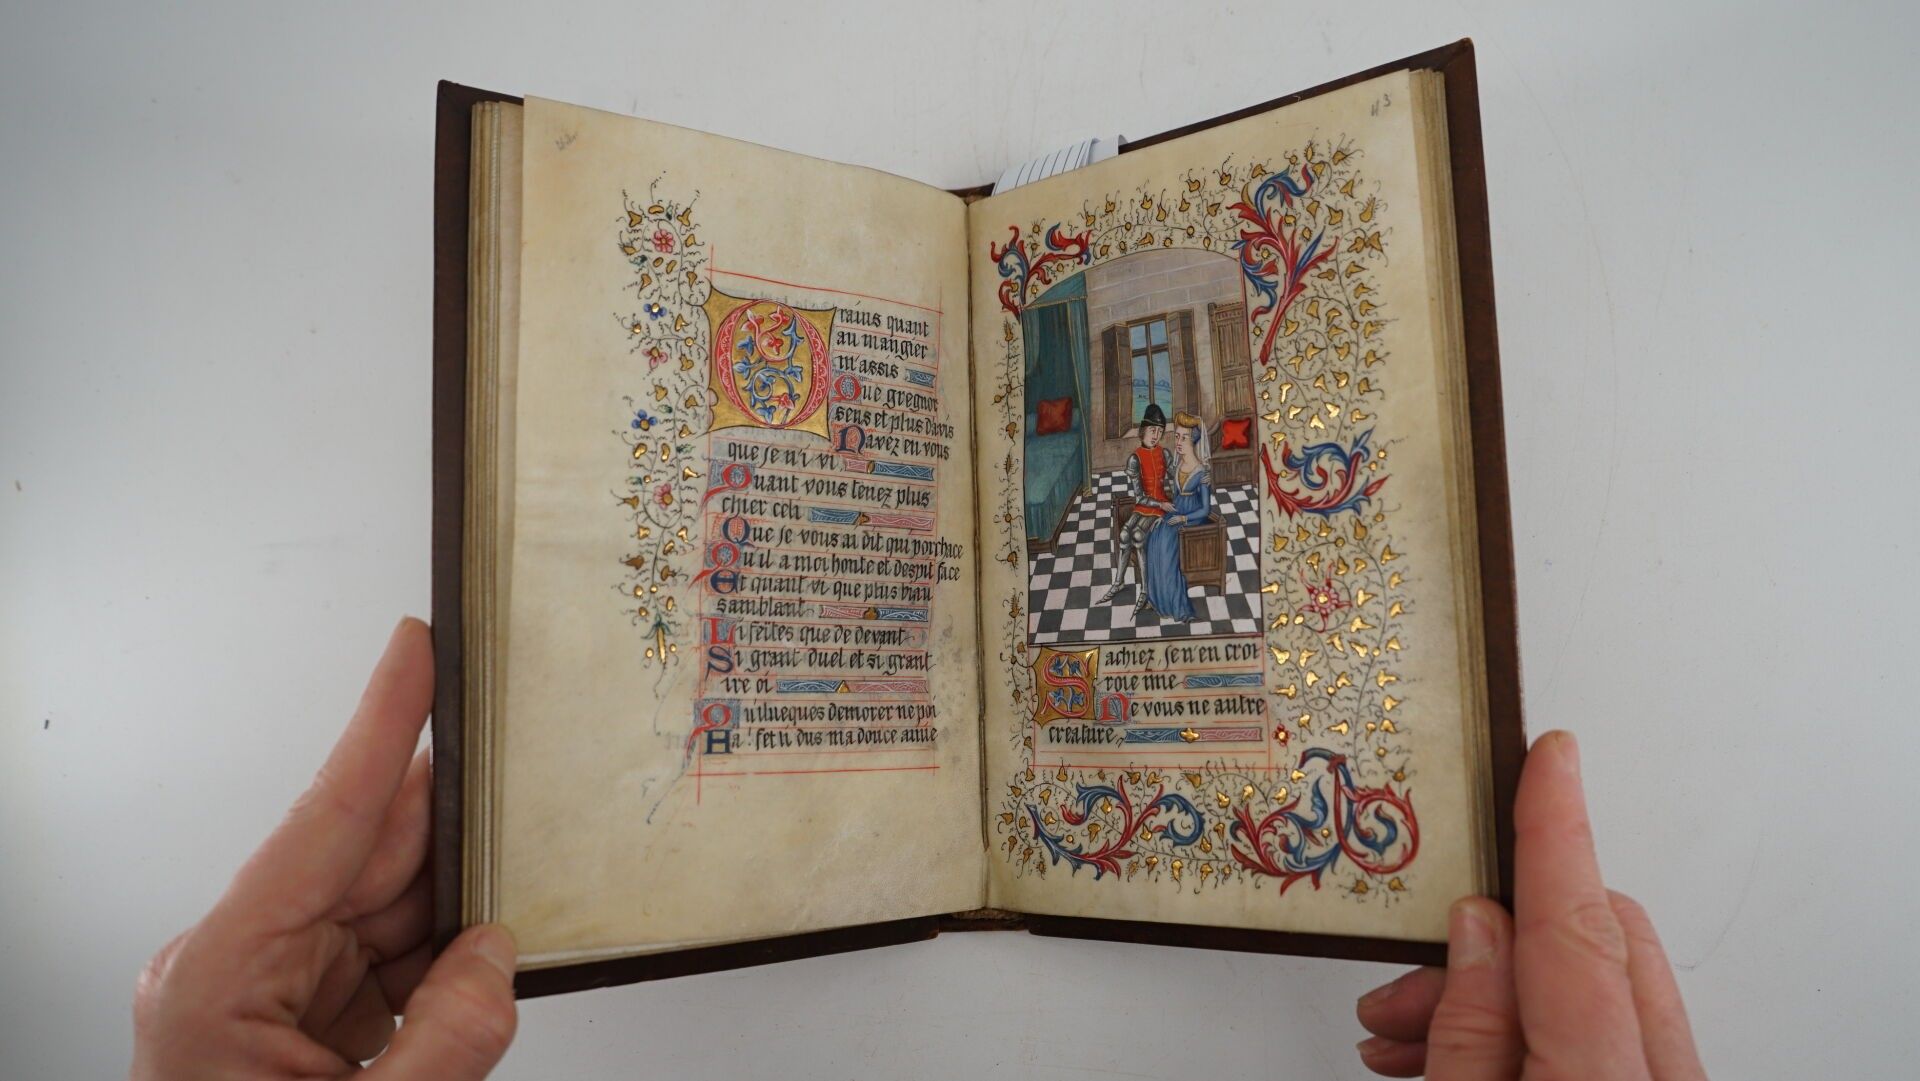 Oraius quant
au mangier
m'assis
Que gregnor
sens et plus d'avis
Navez en vous
que je n'i vi
Quant vous tenez plus
chier celi
Que je vous ai dit qui porchace
Qu'il a moi honte et despit face
Et quant vi que plus biau
samblant
Li feites que de devant
Si grant duel et si grant
ire oi
Qu'ilueques demorer ne poi
Ha! fet li dus ma douce amie
43
Sachiez, je n'en croi
roie mie
Ne vous ne autre
creature,